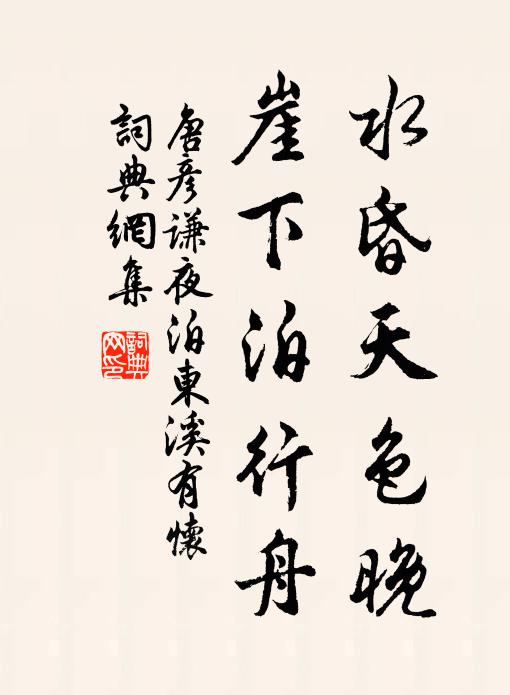 水昏天色晚
崖下泊行舟
唐彥谦夜泊東溪有懷
詞典網集
詞典網印